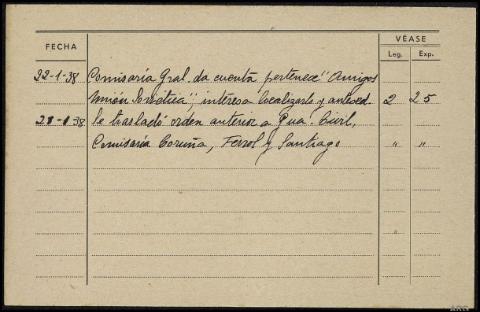 VÉASE
FECHA Leg. Exp.
22-1-38 Comisaría Gral. da cuenta pertenece "Amigos
Unión Soviética"; interesa localizarlo y anteced. 2 25
21-1-38 Se trasladó orden anterior a Gua. Civil,
Comisaría Coruña, Ferrol y Santiago " "
"
ARG